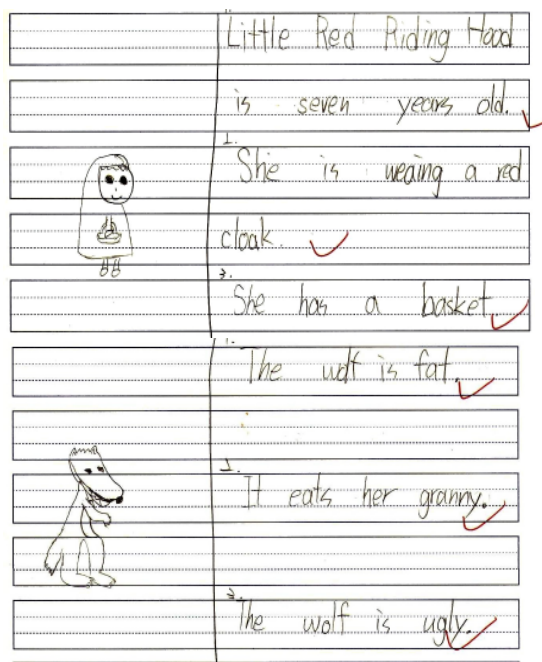 1.
Little Red Riding Hood
is seven years old.
2.
She is weaing a red
cloak.
3.
She has a basket.
1.
The wolf is fat.
2.
It eats her granny.
3.
The wolf is ugly.